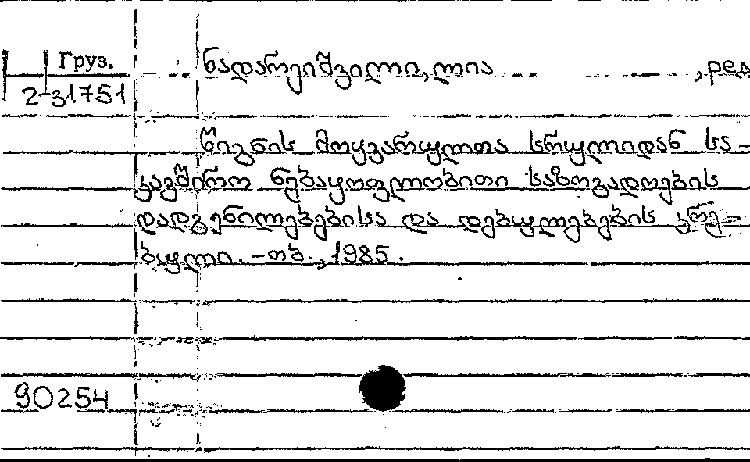 Груз.
2-31751
ნადარეიშვილი, ლია , ред
წიგნის მოყვარულთა სრულიდან სა-
კავშირო ნებაყოფლობითი საზოგადოების
დადგენილებებისა და დებულებების კრე-
ბული. -თბ., 1985.
90254